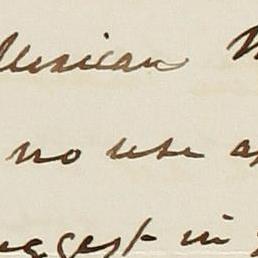 Mexican
no use
suggest in